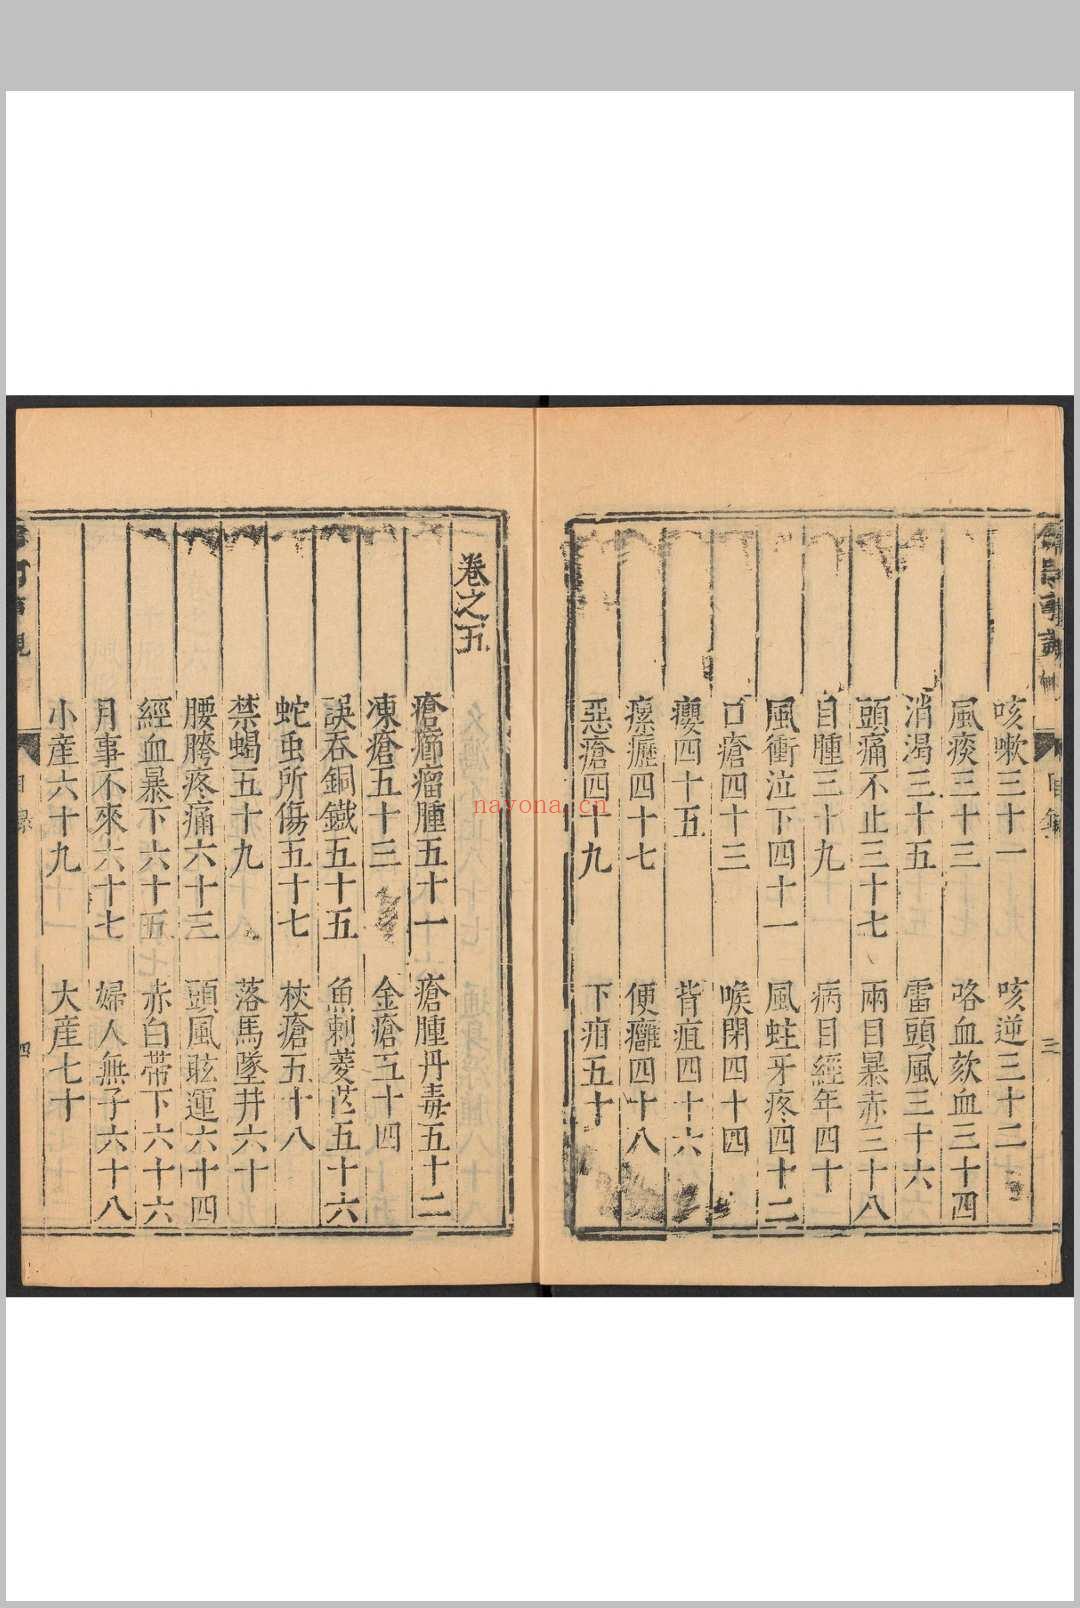 咳嗽三十一　咳逆三十二
風痰三十三　咯血欬血三十四
消渴三十五　雷頭風三十六
頭痛不止三十七　兩目暴赤三十八
目腫三十九　病目經年四十
風衝泣下四十一　風蛀牙疼四十二
口瘡四十三　喉閉四十四
癭四十五　背疽四十六
瘰癧四十七　便癰四十八
惡瘡四十九　下疳五十
目錄
三
卷之五
瘡癤瘤腫五十一　瘡腫丹毒五十二
凍瘡五十三　金瘡五十四
誤吞銅鐵五十五　魚刺菱芒五十六
蛇虫所傷五十七　杖瘡五十八
禁蝎五十九　落馬墜井六十
腰胯疼痛六十三　頭風眩運六十四
經血暴下六十五　赤白帶下六十六
月事不來六十七　婦人無子六十八
小產六十九　大產七十
目錄
四
nayona.cn